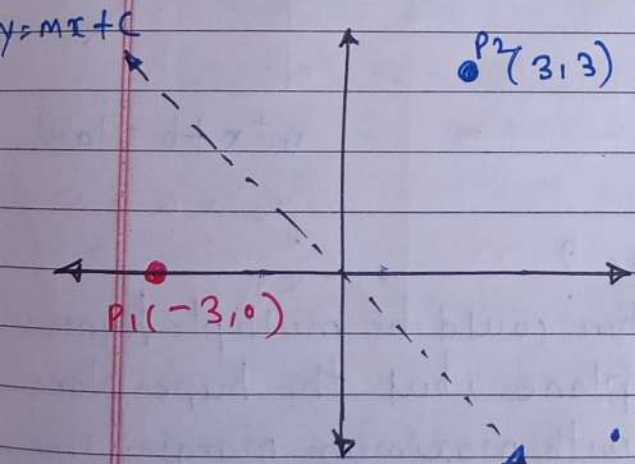 y=mx+C
P2(3,3)
P1(-3,0)